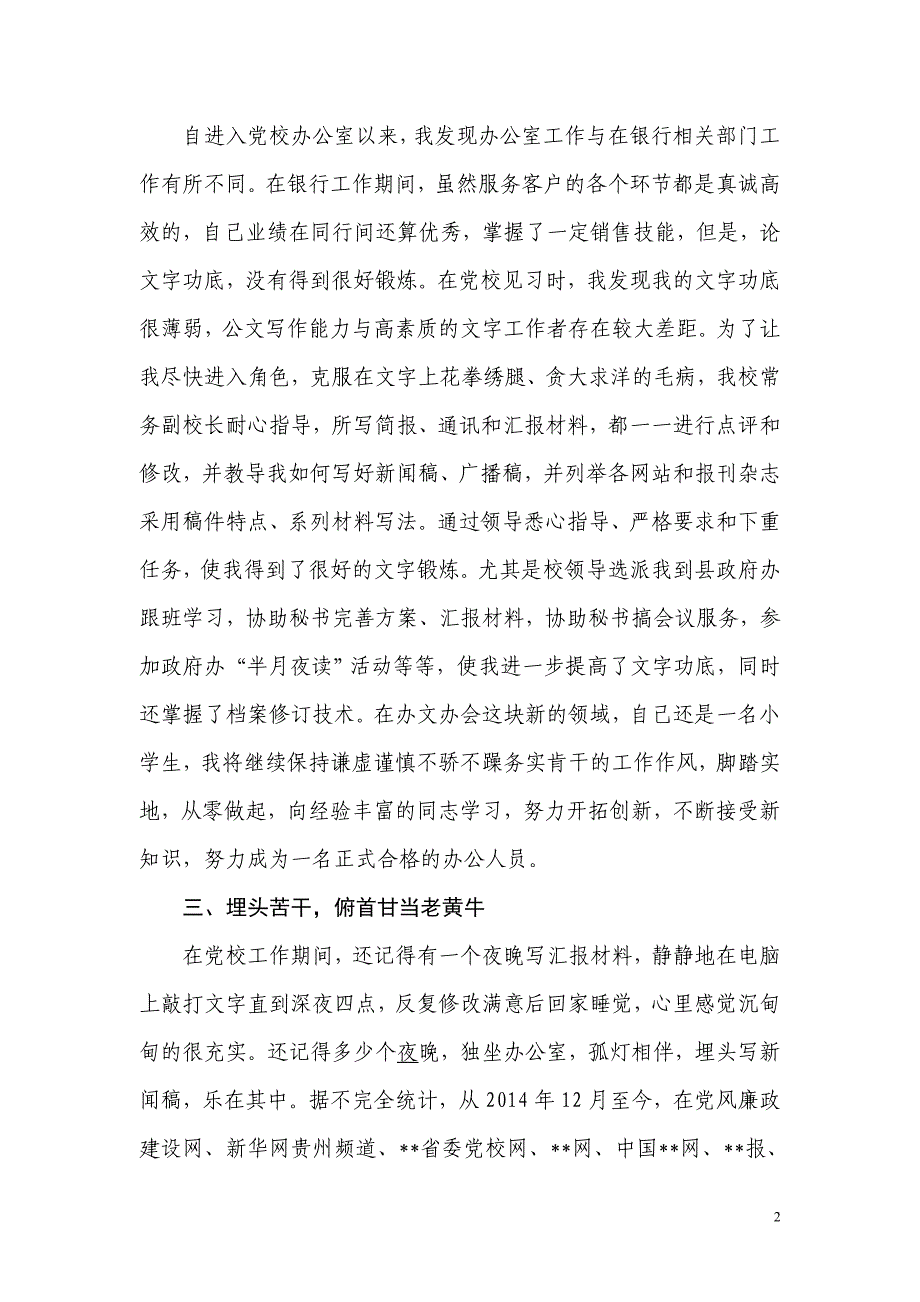 自进入党校办公室以来，我发现办公室工作与在银行相关部门工
作有所不同。在银行工作期间，虽然服务客户的各个环节都是真诚高
效的，自己业绩在同行间还算优秀，掌握了一定销售技能，但是，论
文字功底，没有得到很好锻炼。在党校见习时，我发现我的文字功底
很薄弱，公文写作能力与高素质的文字工作者存在较大差距。为了让
我尽快进入角色，克服在文字上花拳绣腿、贪大求洋的毛病，我校常
务副校长耐心指导，所写简报、通讯和汇报材料，都一一进行点评和
修改，并教导我如何写好新闻稿、广播稿，并列举各网站和报刊杂志
采用稿件特点、系列材料写法。通过领导悉心指导、严格要求和下重
任务，使我得到了很好的文字锻炼。尤其是校领导选派我到县政府办
跟班学习，协助秘书完善方案、汇报材料，协助秘书搞会议服务，参
加政府办“半月夜读”活动等等，使我进一步提高了文字功底，同时
还掌握了档案修订技术。在办文办会这块新的领域，自己还是一名小
学生，我将继续保持谦虚谨慎不骄不躁务实肯干的工作作风，脚踏实
地，从零做起，向经验丰富的同志学习，努力开拓创新，不断接受新
知识，努力成为一名正式合格的办公人员。
三、埋头苦干，俯首甘当老黄牛
在党校工作期间，还记得有一个夜晚写汇报材料，静静地在电脑
上敲打文字直到深夜四点，反复修改满意后回家睡觉，心里感觉沉甸
甸的很充实。还记得多少个夜晚，独坐办公室，孤灯相伴，埋头写新
闻稿，乐在其中。据不完全统计，从 2014 年 12 月至今，在党风廉政
建设网、新华网贵州频道、**省委党校网、**网、中国**网、**报、
2